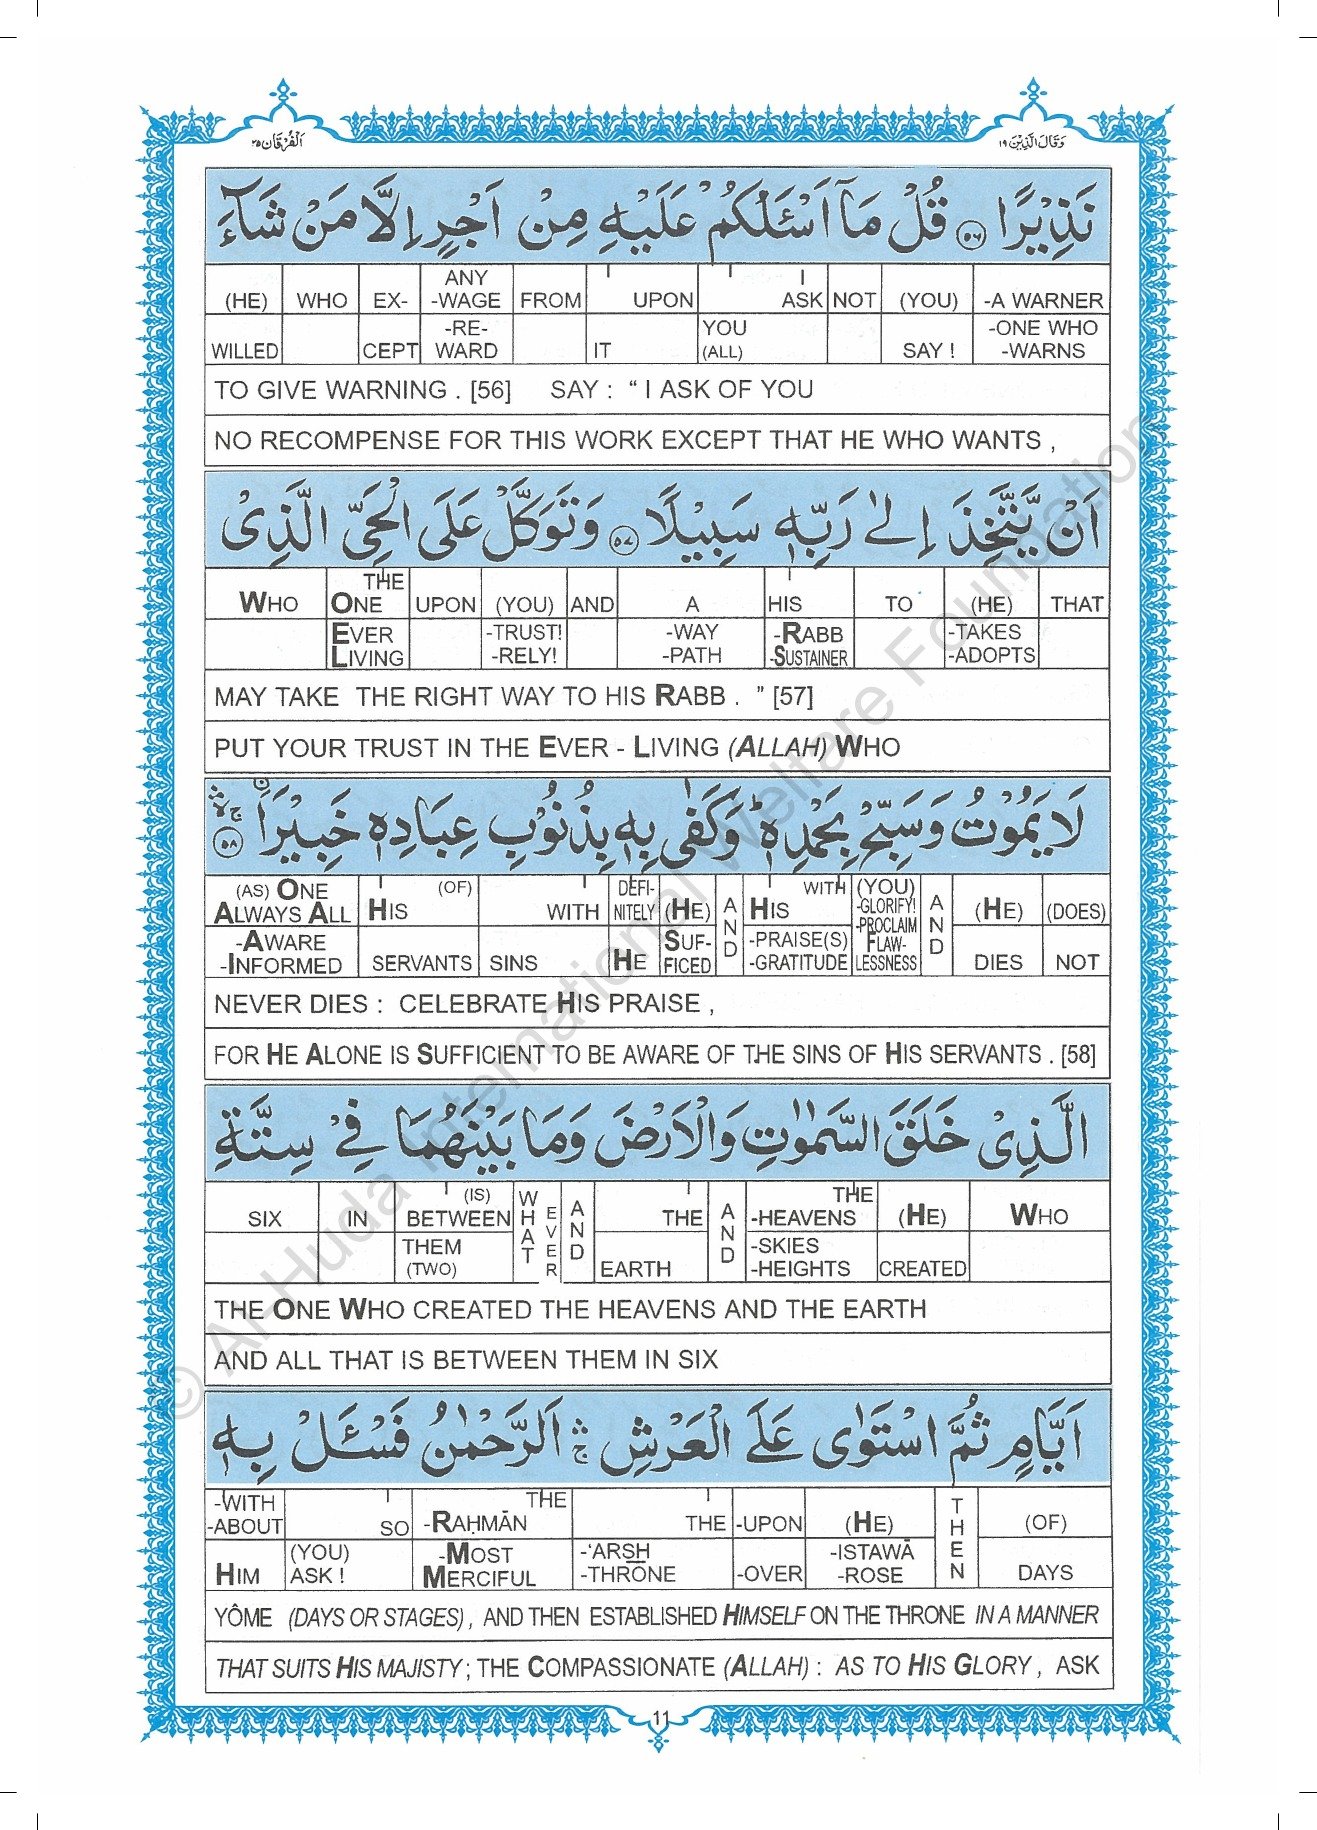 اَلْفُرْقَان ٢٥
وَقَالَ الَّذِيْنَ ١٩
نَذِيْرًا ٥٦ قُلْ مَآ اَسْـَٔلُكُمْ عَلَيْهِ مِنْ اَجْرٍ اِلَّا مَنْ شَآءَ
(HE) WHO EX- ANY -WAGE FROM UPON I ASK NOT (YOU) -A WARNER
WILLED CEPT -RE- WARD IT YOU (ALL) SAY ! -ONE WHO -WARNS
TO GIVE WARNING . [56] SAY : “ I ASK OF YOU
NO RECOMPENSE FOR THIS WORK EXCEPT THAT HE WHO WANTS ,
اَنْ يَّتَّخِذَ اِلٰى رَبِّهٖ سَبِيْلًا ٥٧ وَتَوَكَّلْ عَلَى الْحَيِّ الَّذِيْ
WHO THE ONE UPON (YOU) AND A HIS TO (HE) THAT
EVER LIVING -TRUST! -RELY! -WAY -PATH -RABB -SUSTAINER -TAKES -ADOPTS
MAY TAKE THE RIGHT WAY TO HIS RABB . ” [57]
PUT YOUR TRUST IN THE EVER - LIVING (ALLAH) WHO
لَا يَمُوْتُ وَسَبِّحْ بِحَمْدِهٖ ؕ وَكَفٰى بِهٖ بِذُنُوْبِ عِبَادِهٖ خَبِيْرَا ٥٨
(AS) ONE ALWAYS ALL HIS (OF) WITH DEFI- NITELY (HE) AND HIS WITH (YOU) -GLORIFY! -PROCLAIM FLAW- LESSNESS AND (HE) (DOES)
-AWARE -INFORMED SERVANTS SINS HE SUF- FICED -PRAISE(S) -GRATITUDE DIES NOT
NEVER DIES : CELEBRATE HIS PRAISE ,
FOR HE ALONE IS SUFFICIENT TO BE AWARE OF THE SINS OF HIS SERVANTS . [58]
الَّذِيْ خَلَقَ السَّمٰوٰتِ وَالْاَرْضَ وَمَا بَيْنَهُمَا فِيْ سِتَّةِ
SIX IN (IS) BETWEEN WHAT EVER AND THE AND THE -HEAVENS (HE) WHO
THEM (TWO) EARTH -SKIES -HEIGHTS CREATED
THE ONE WHO CREATED THE HEAVENS AND THE EARTH
AND ALL THAT IS BETWEEN THEM IN SIX
اَيَّامٍ ثُمَّ اسْتَوٰى عَلَى الْعَرْشِ ۛۚ اَلرَّحْمٰنُ فَسْـَٔلْ بِهٖ
-WITH -ABOUT SO THE -RAḤMĀN THE -UPON (HE) THEN (OF)
HIM (YOU) ASK ! -MOST MERCIFUL -‘ARSH -THRONE -OVER -ISTAWĀ -ROSE DAYS
YÔME (DAYS OR STAGES) , AND THEN ESTABLISHED HIMSELF ON THE THRONE IN A MANNER
THAT SUITS HIS MAJISTY ; THE COMPASSIONATE (ALLAH) : AS TO HIS GLORY , ASK
11
© Al-Huda International Welfare Foundation